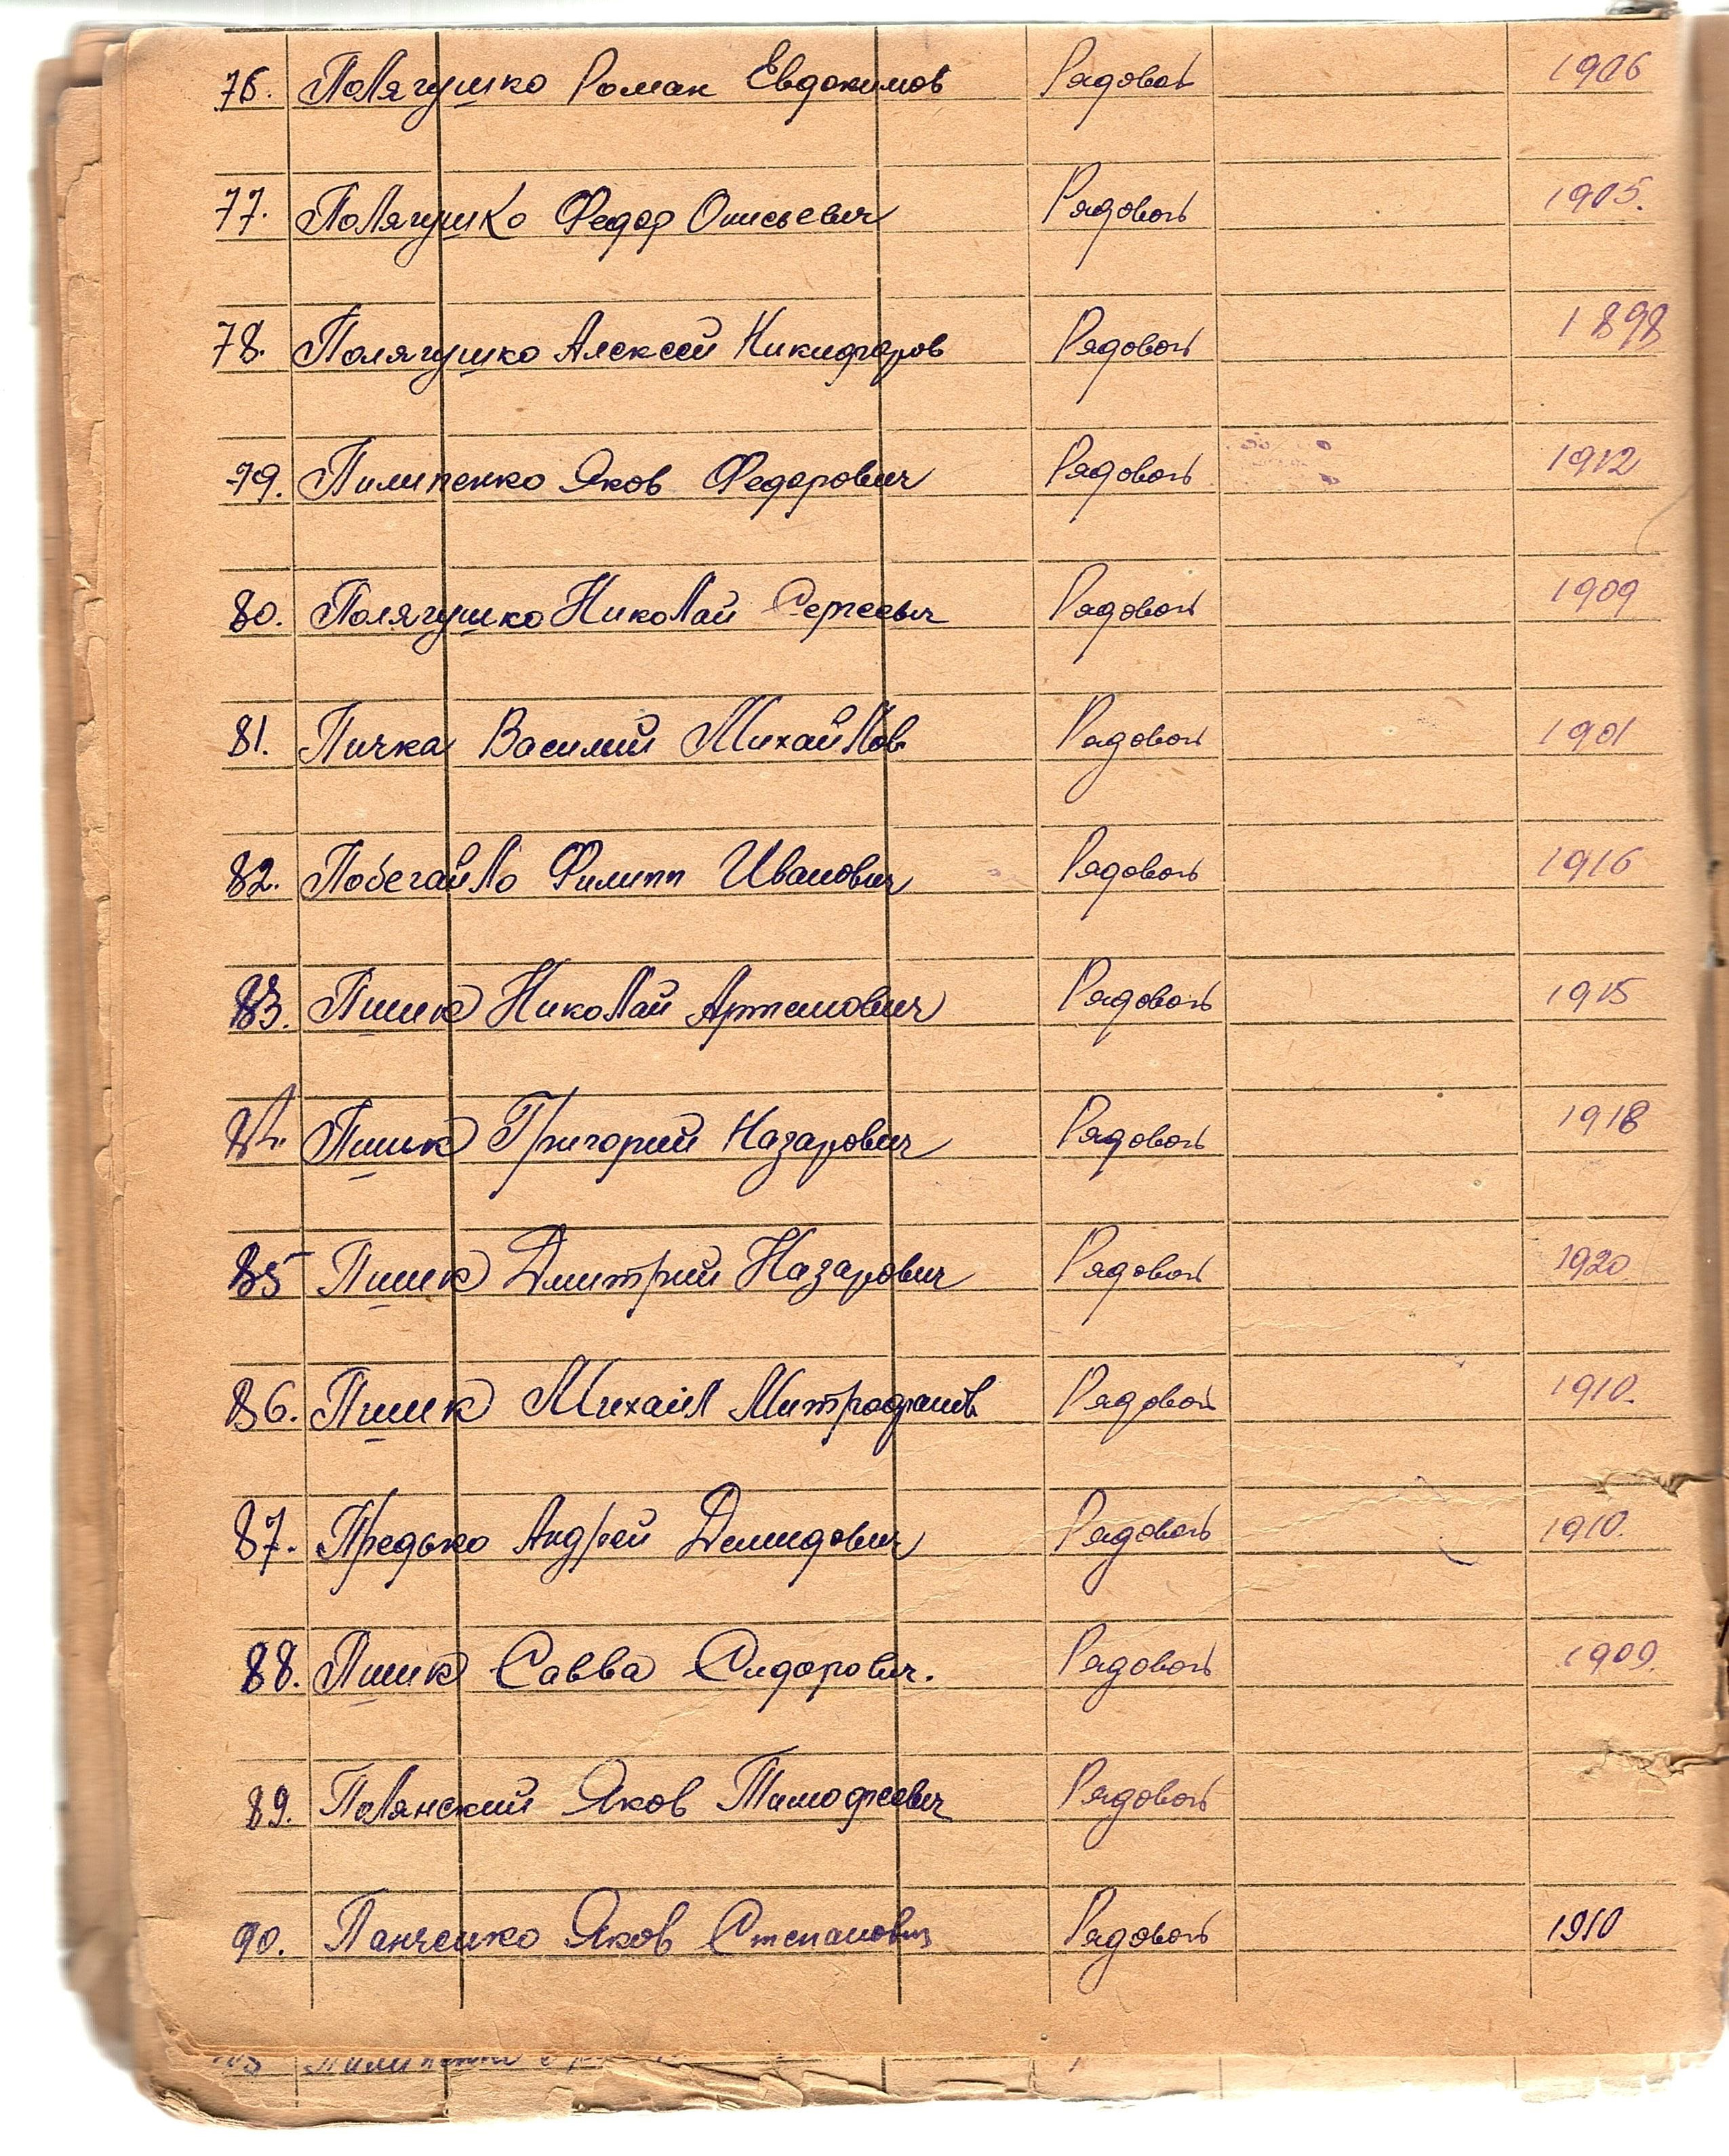 76. Полягушко Роман Евдокимов Рядовой 1906
77. Полягушко Федор Онисьевич Рядовой 1905.
78. Полягушко Алексей Никифоров Рядовой 1898
79. Пилипенко Яков Федорович Рядовой 1912
80. Полягушко Николай Сергеевич Рядовой 1909
81. Пичка Василий Михайлов Рядовой 1901
82. Побегайло Филипп Иванович Рядовой 1916
83. Пшик Николай Артемович Рядовой 1915
84. Пшик Григорий Назарович Рядовой 1918
85 Пшик Дмитрий Назарович Рядовой 1920
86. Пшик Михаил Митрофанов Рядовой 1910.
87. Предько Андрей Демидович Рядовой 1910.
88. Пшик Савва Сидорович. Рядовой 1909.
89. Полянский Яков Тимофеевич Рядовой
90. Панченко Яков Степанович Рядовой 1910